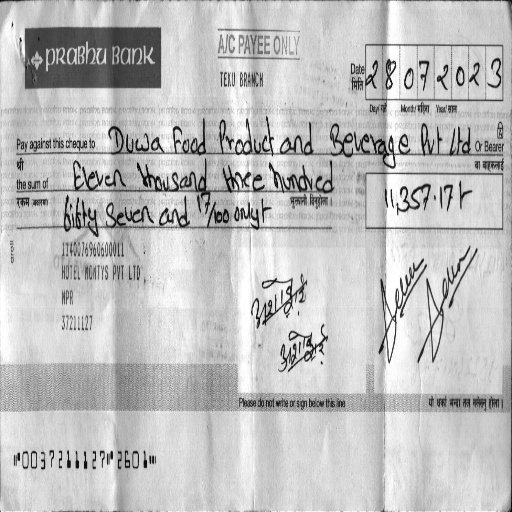 PRABHU BANK
A/C PAYEE ONLY
TEKU BRANCH
Date 28072023
मिति
Day/ गते Month/ महिना Year/ साल
Pay against this cheque to Duwa Food Product and Beverage Pvt Ltd Or Bearer
श्री वा वाहकलाई
the sum of Eleven thousand three hundred
11,357.17/-
fifty seven and 17/100 only/-
HOTEL MONTYS PVT LTD
NPR
37211127
Please do not write or sign below this line
⑈0037211127⑈2601⑈